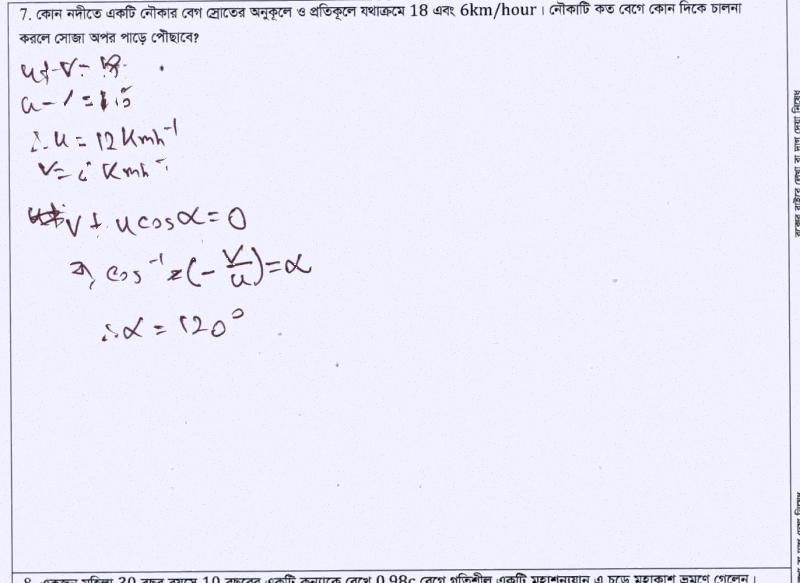 7. কোন নদীতে একটি নৌকার বেগ স্রোতের অনুকূলে ও প্রতিকূলে যথাক্রমে 18 এবং 6km/hour। নৌকাটি কত বেগে কোন দিকে চালনা
করলে সোজা অপর পাড়ে পৌঁছাবে?
u + v = 18
u - v =
∴ u = 12 Kmh⁻¹
v = Kmh⁻
v + u cosα = 0
⇒, cos⁻¹ (- v/u) = α
∴ α = 120°
8. একজন মহিলা 30 বছর বয়সে 10 বছরের একটি কন্যাকে রেখে 0.98c বেগে গতিশীল একটি মহাশূন্যযান এ চড়ে মহাকাশ ভ্রমণে গেলেন।